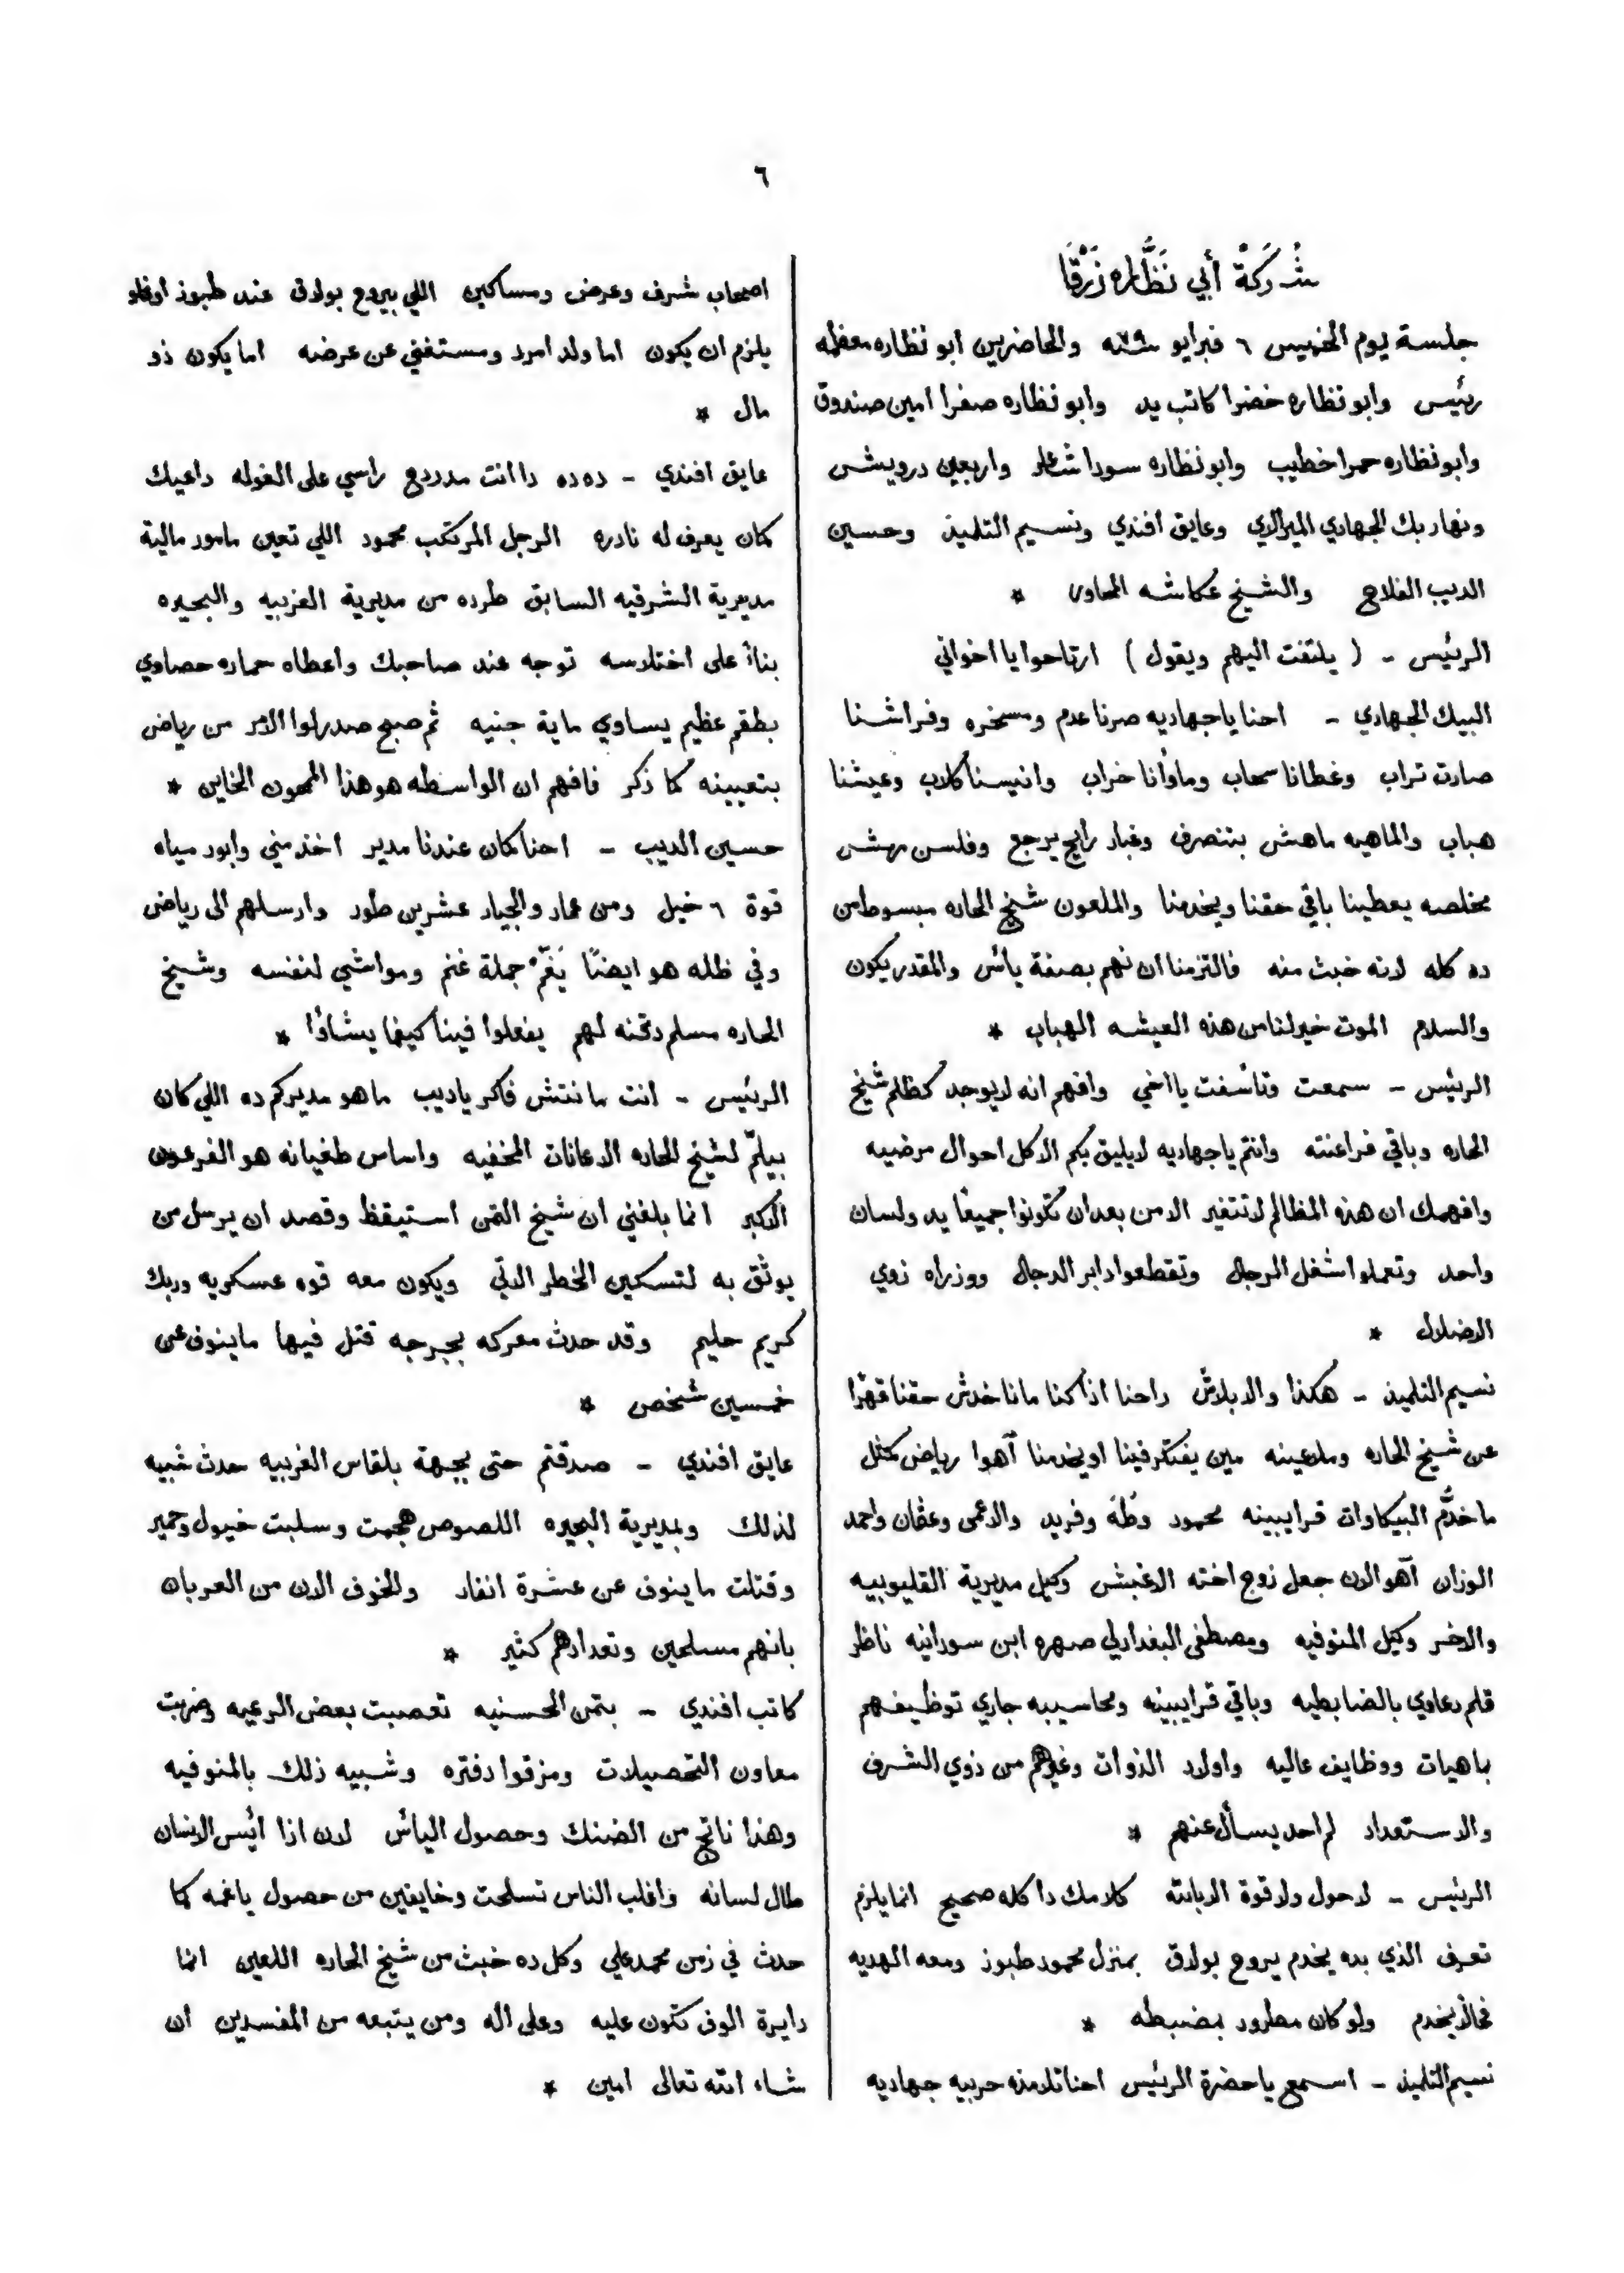 ٦
شركة أبي نَظَّاره زَرْقَا
جلسة يوم الخميس ٦ فبرايو سنة ٧٩ والحاضرين ابو نظاره معظمه
رئيس وابو نظاره خضرا كاتب يد وابو نظاره صفرا امين صندوق
وابو نظاره حمرا خطيب وابو نظاره سودا شاعر واربعين درويش
ونهار بك الجهادي الميرالاي وعايق افندي ونسيم التلميذ وحسين
الديب الفلاح والشيخ عكاشه المحاور *
الرئيس - ( يلتفت اليهم ويقول ) ارتاحوا يا اخواني
البيك الجهادي - احنا يا جهاديه صرنا عدم ومسخره وفراشنا
صارت تراب وغطانا سحاب ومأوانا خراب وانيسنا كلاب وعيشنا
هباب والماهيه ماهش بتنصرف وغبار رايح يرجع وفلسن مهش
مخلصه يعطينا باقي حقنا ويخدمنا والملعون شيخ الحاره مبسوط من
ده كله لانه خبث منه فالتزمنا ان نهم بصفة يأس والمقدر يكون
والسلام الموت خير لنا من هذه العيشه الهباب *
الرئيس - سمعت وتأسفت يا اخي وافهم انه لا يوجد كظلم شيخ
الحاره وباقي فراعنته وانتم يا جهاديه لا يليق بكم الا كل احوال مرضيه
وافهمك ان هذه المظالم لا تتغير الا من بعد ان تكونوا جميعًا يد ولسان
واحد وتعملوا شغل الرجال وتقطعوا دابر الدجال ووزراه زوي
الاضلال *
نسيم التلميذ - هكذا والا بلاش داحنا اذا كنا ما ناخدش حقنا قهرًا
عن شيخ الحاره وملاعينه مين يفتكر فينا او يخدمنا آهوا رياض كمثل
ما خدَّم البيكاوات قرايبينه محمود وطه وفريد والاعمى وعثمان واحمد
الوزان آهو الان جعل زوج اخته الاغبش وكيل مديرية القليوبيه
والاخر وكيل المنوفيه ومصطفى البغدادلي صهره ابن سودانيه ناظر
قلم دعاوي بالضابطيه وباقي قرايبينه ومحاسيبه جاري توظيفهم
بماهيات ووظايف عاليه واولاد الذوات وغيرهم من ذوي الشرف
والاستعداد لم احد يسأل عنهم *
الرئيس - لا حول ولا قوة الا بالله كلامك دا كله صحيح انما يلزم
تعرف الذي بده يخدم يروح بولاق بمنزل محمود طبوز ومعه الهديه
فحالاً يخدم ولو كان مطرود بضبطه *
نسيم التلميذ - اسمع يا حضرة الرئيس احنا تلامذه حربيه جهاديه
اصحاب شرف وعرض ومساكين اللي بيروح بولاق عند طبوز اوغلو
يلزم ان يكون اما ولد امرد ومستغني عن عرضه اما يكون ذو
مال *
عايق افندي - ده ده دا انت مدردح راسي على الغوله داعيك
كمان يعرف له نادره الرجل المرتكب محمود اللي تعين مامور مالية
مديرية الشرقيه السابق طرده من مديرية الغربيه والبحيره
بناءً على اختلاسه توجه عند صاحبك واعطاه حماره حصاوي
بطقم عظيم يساوي ماية جنيه ثم صبح صدر لوا الامر من رياض
بتعيينه كما ذكر فافهم ان الواسطه هو هذا الخاين *
حسين الديب - احنا كان عندنا مدير اخذ مني وابور مياه
قوة ٦ خيل ومن عمار والجيار عشرين طور وارسلهم الى رياض
وفي ظله هو ايضًا يَغُمّ جملة غنم ومواشي لنفسه وشيخ
الحاره مسلم دقنه لهم يفعلوا فينا كيفما يشاؤا *
الرئيس - انت مانتش فاكر يا ديب ما هو مديركم ده اللي كان
بيلمّ لشيخ الحاره الاعانات المخفيه واساس طغيانه هو الفرعون
الاكبر انما بلغني ان شيخ التمن استيقظ وقصد ان يرسل من
يوثق به لتسكين الخطر الاتي ويكون معه قوه عسكريه وربك
كريم حليم وقد حدث معركه بجرجه قتل فيها ما ينوف عن
خمسين شخص *
عايق افندي - صدقتم حتى بجهة بلقاس الغربيه حدث شبيه
لذلك وبمديرية البحيره اللصوص هجمت وسلبت خيول وحمير
وقتلت ما ينوف عن عشرة انفار والخوف الان من العربان
بانهم مسلحين وتعدادهم كثير *
كاتب افندي - بتمن الحسنيه تعصبت بعض الرعيه وضربت
معاون التحصيلات ومزقوا دفتره وشبيه ذلك بالمنوفيه
وهذا ناتج من الضنك وحصول اليأس لان اذا أيس الانسان
طال لسانه واغلب الناس تسلحت وخايفين من حصول ياغمه كما
حدث في زمن محمد علي وكل ده خبث من شيخ الحاره اللعين انما
دايرة الوف تكون عليه وعلى اله ومن يتبعه من المفسدين ان
شاء الله تعالى امين *